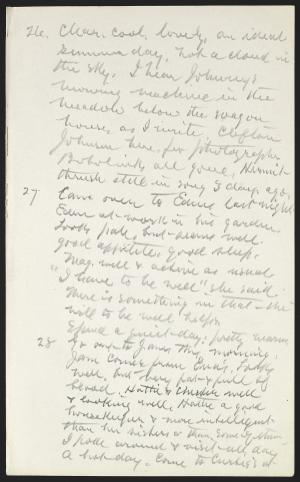 26. Clear, cool, lovely, an ideal
summer day. Not a cloud in
the sky. I hear Johnny's
mowing machine in the
meadow below the wagon
house, as I write. Clifton
Johnson here, for photographs.
Bobolinks all gone. Hermit
thrush still in song 3 days ago.
27 Came over to Edens last night
Eden at work in his garden.
Looks pale, but seems well.
good appetite, good sleep.
Mag. well & active as usual
"I have to be well" she said.
There is something in that - the
will to be well helps.
Spend a quiet day; pretty warm.
28 I go over to Janes this morning.
Jane comes from
well, but very fat & full of
blood. Hattie & well
& looking well, Hattie a good
housekeeper & more intelligent
than his sisters or than
I poke around & visit all day
A hot day. Come to Curtis's at